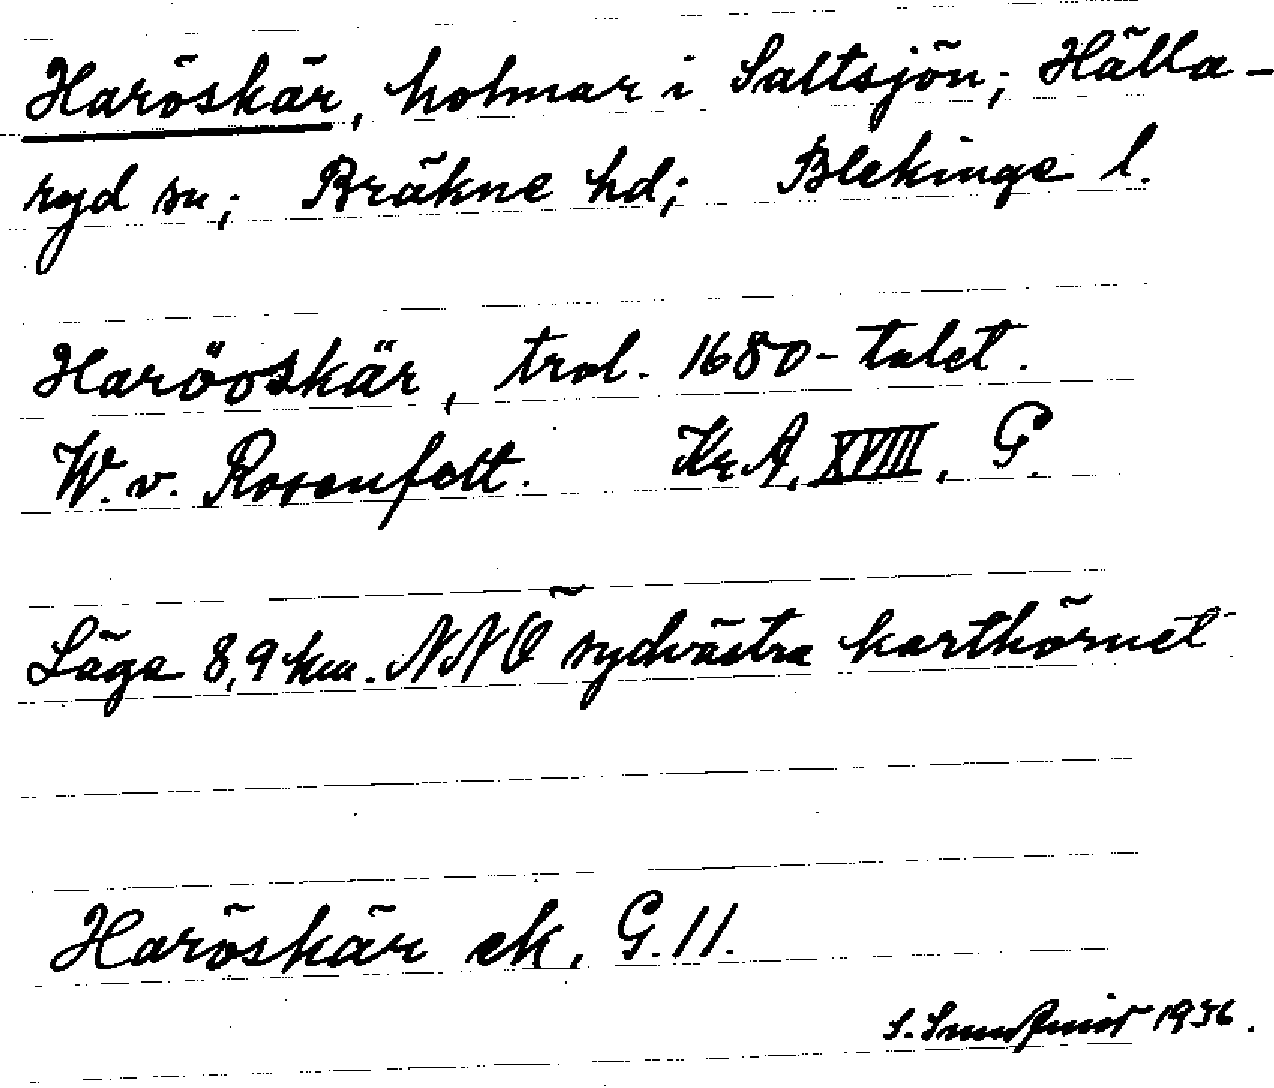 Haröskär, holmar i Saltsjön; Hälla-
ryd sn; Bräkne hd; Blekinge l.
Haröoskär, trol. 1680-talet.
W. v. Rosenfelt. Kr A, XVIII, G.
Läge 8,9 km. NNÖ sydvästra karthörnet
Haröskär ek, G. 11.
S. 1936.